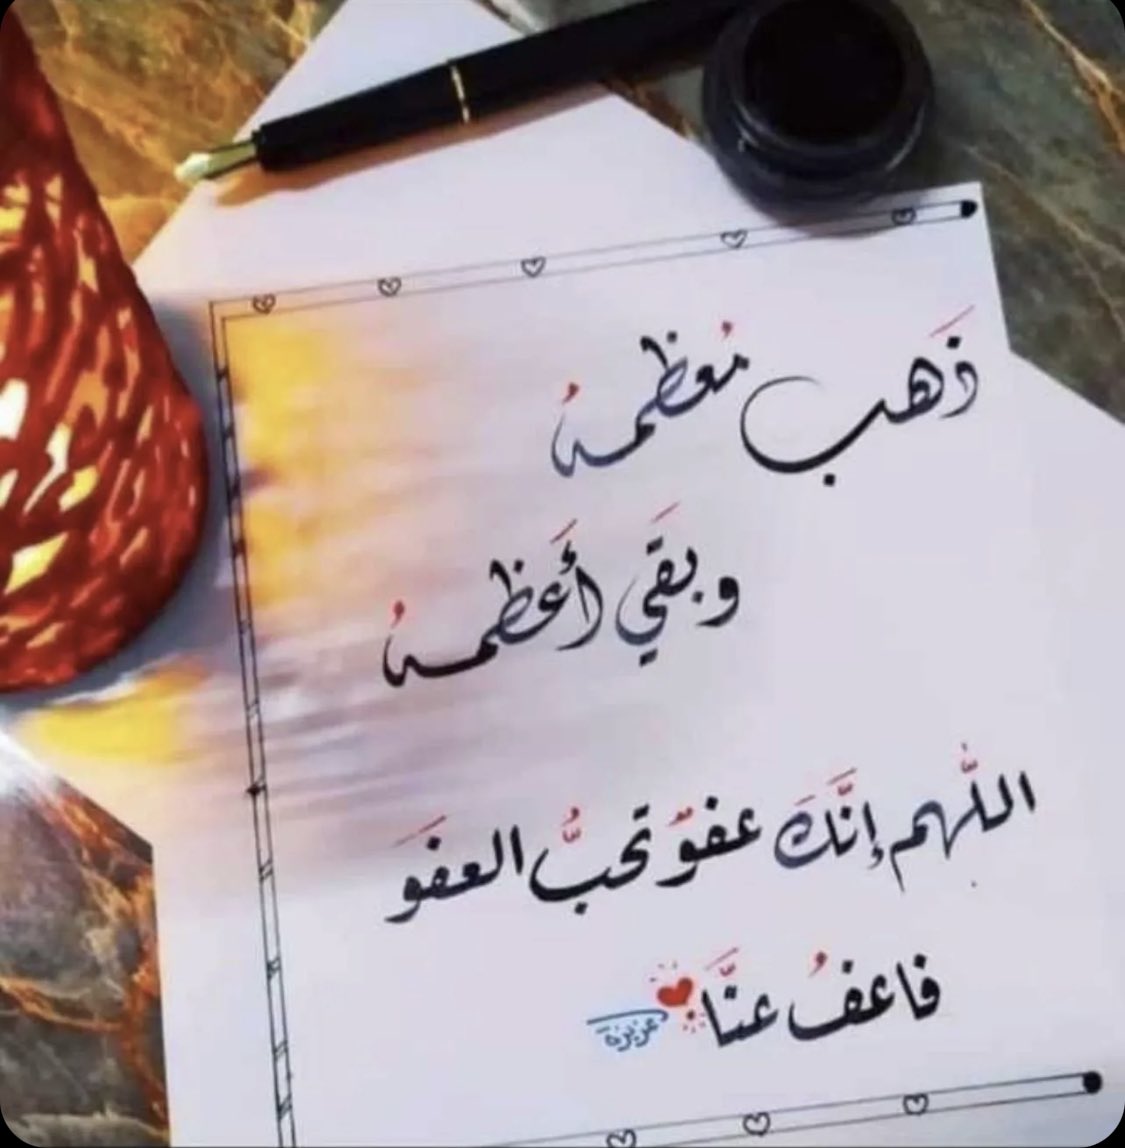 ذَهب مُعظمهُ
وبقَي أَعظمهُ
اللَّهم إنَّكَ عفوٌ تحبُّ العفَو
فاعفُ عنَّا
عزيزة